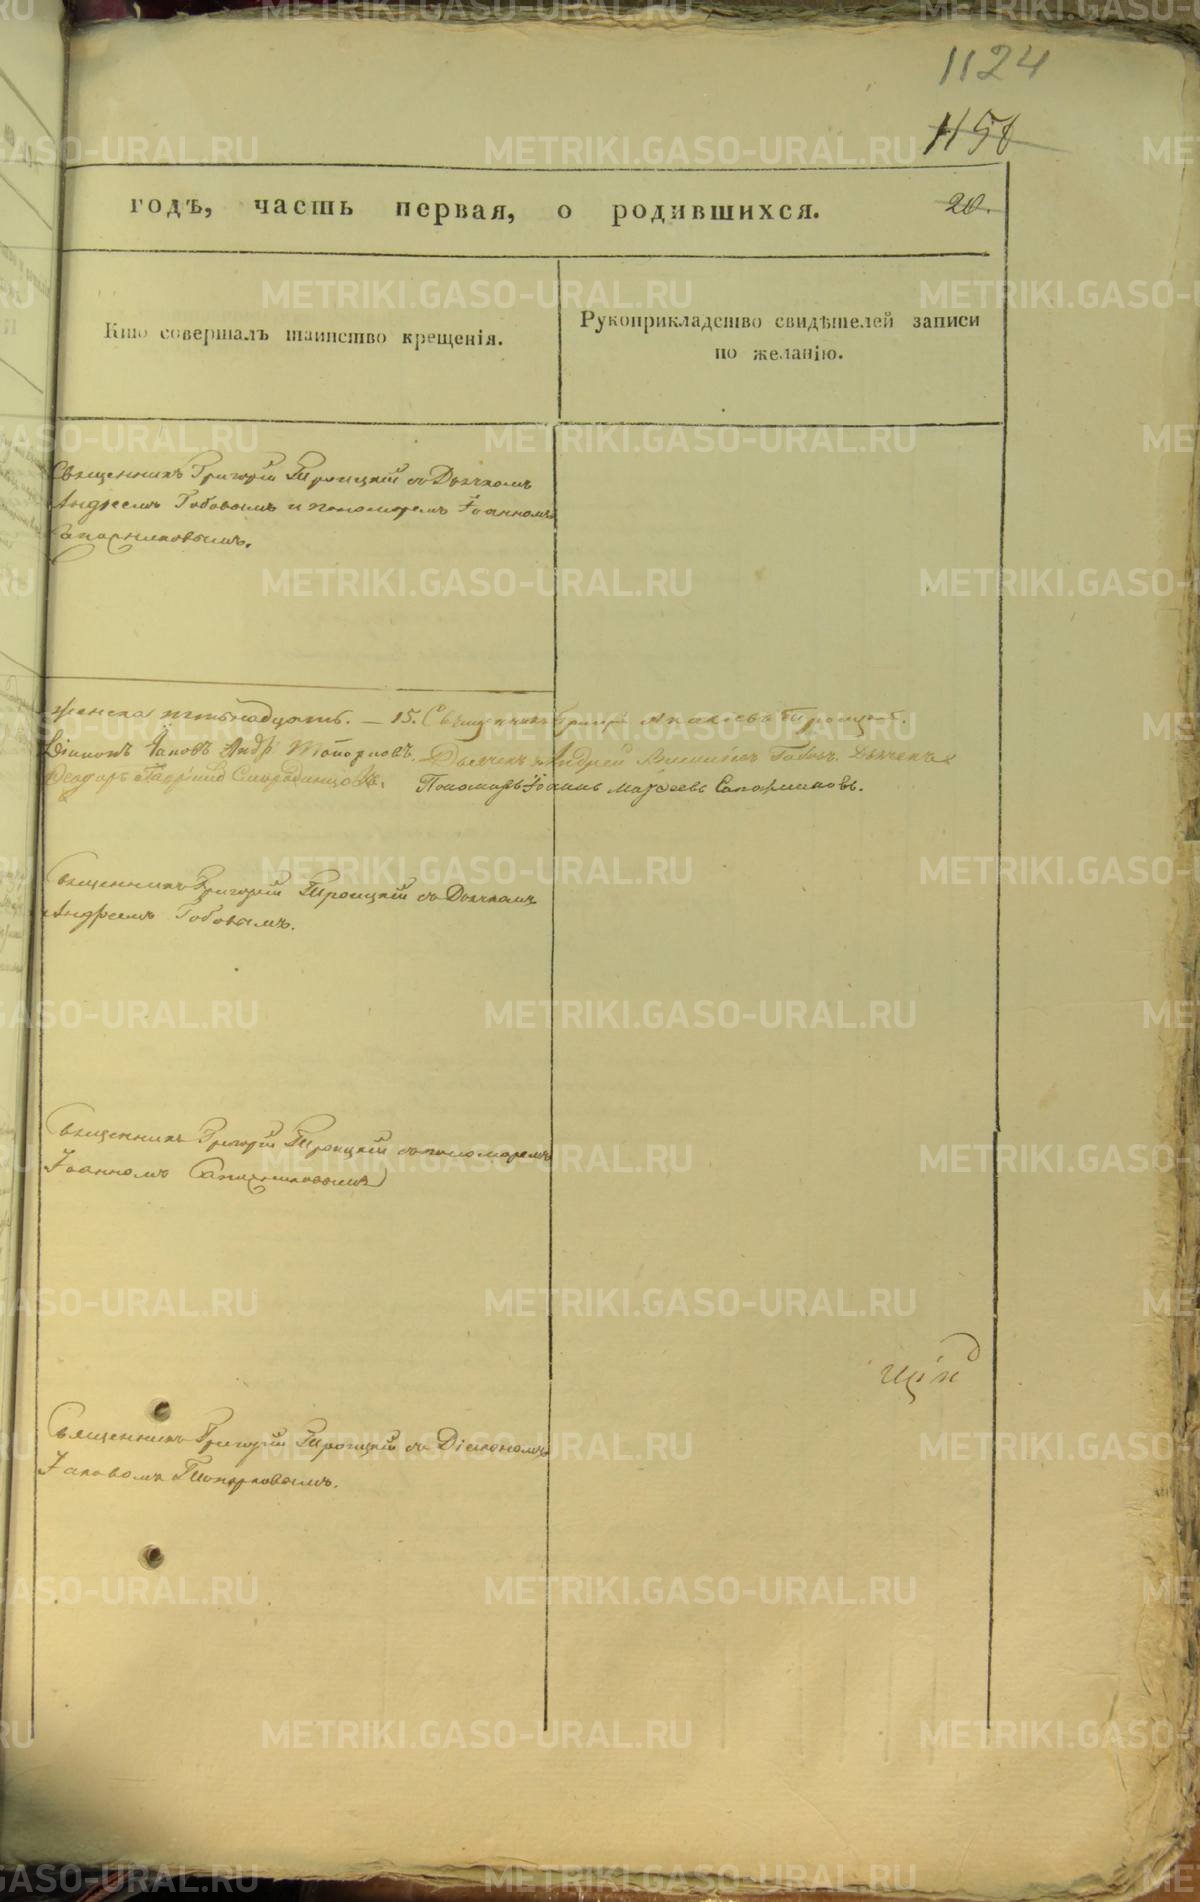 1124
1150
годъ, часть первая, о родившихся. 20.
Кто совершалъ таинство крещенія.
Рукоприкладство свидѣтелей записи
по желанію.
Священникъ Григорій Троицкій съ Дьячкомъ
Андреемъ Гобовымъ и пономаремъ Іоанномъ
Сапожниковымъ.
женска пятьнадцать. — 15. Священникъ Троицкой.
Діаконъ Яковъ Топорковъ. Дьячекъ Андрей Гобовъ. Дьячекъ
Феодоръ Пономарь Іоаннъ Сапожниковъ.
Священникъ Григорій Троицкій съ Дьячкомъ
Андреемъ Гобовымъ.
Священникъ Григорій Троицкій съ пономаремъ
Іоанномъ Сапожниковымъ
Священникъ Григорій Троицкій съ Діакономъ
Іаковомъ Топорковымъ.
METRIKI.GASO-URAL.RU